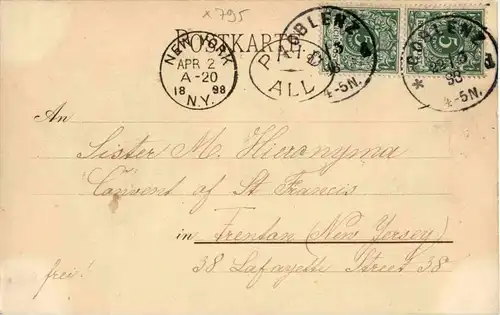 x 795
POSTKARTE
NEW YORK
APR 2
A-20
18 98
N.Y.
PAID
ALL
COBLENZ
98
4-5N.
5
5
COBLENZ
98
* 4-5N.
An
Sister M. Hieronyma
Convent of St Francis
in Trenton (New Yersey)
38 Lafayette Street 38
frei!